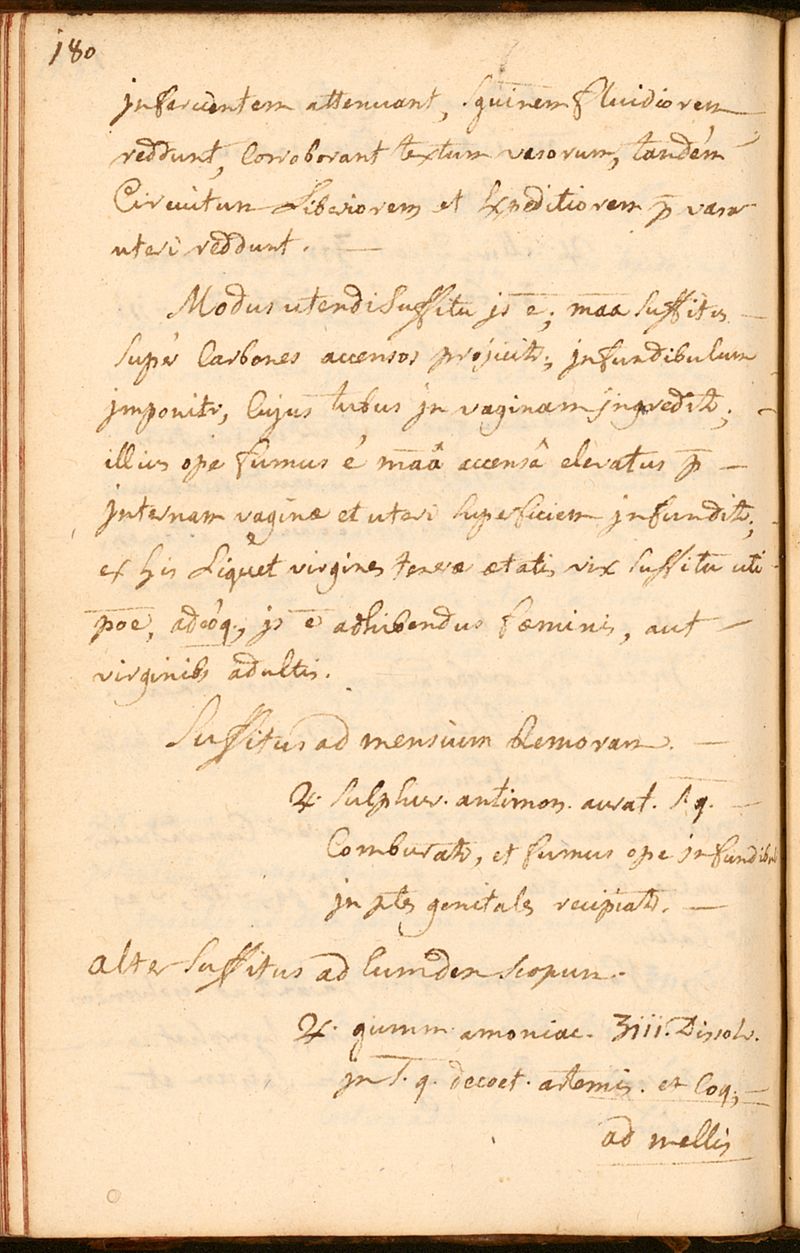 180
jnfarcientem attenuant, Sguinem fluidiorem
reddunt, Corroborant textum vasorum, tandem
Circuitum Liberiorem et Expeditiorem p̄ vasa
uteri reddunt. —
Modus utendi Suffitu js ē; maā Suffitus —
Super Carbones accensos projicitr; jnfundibulum
jmponitr, Cujus tubus jn vaginam jngreditr;
illius ope fumus é maâ accensâ elevatus p̄ —
jnternam vaginæ et uteri Supeficiem jnfunditr;
ex his Liquet virgines teneræ ætatis vix Suffitu uti
poe, adeóq; js ē adhibendus fæminis, aut —
virginibs adultis.
Suffitus ad mensium Remoram. —
♃. Sulphur. antimon. aurat. S. q. —
Comburatr, et fumus ope jnfundibuli
jn ptes genitales recipiatr. —
alter Suffitus ad Eumden scopum.
♃. gumm. amoniac. ʒiii. Dissolv.
jn S. q. decoct. artemis. et Coq; —
ad mellis